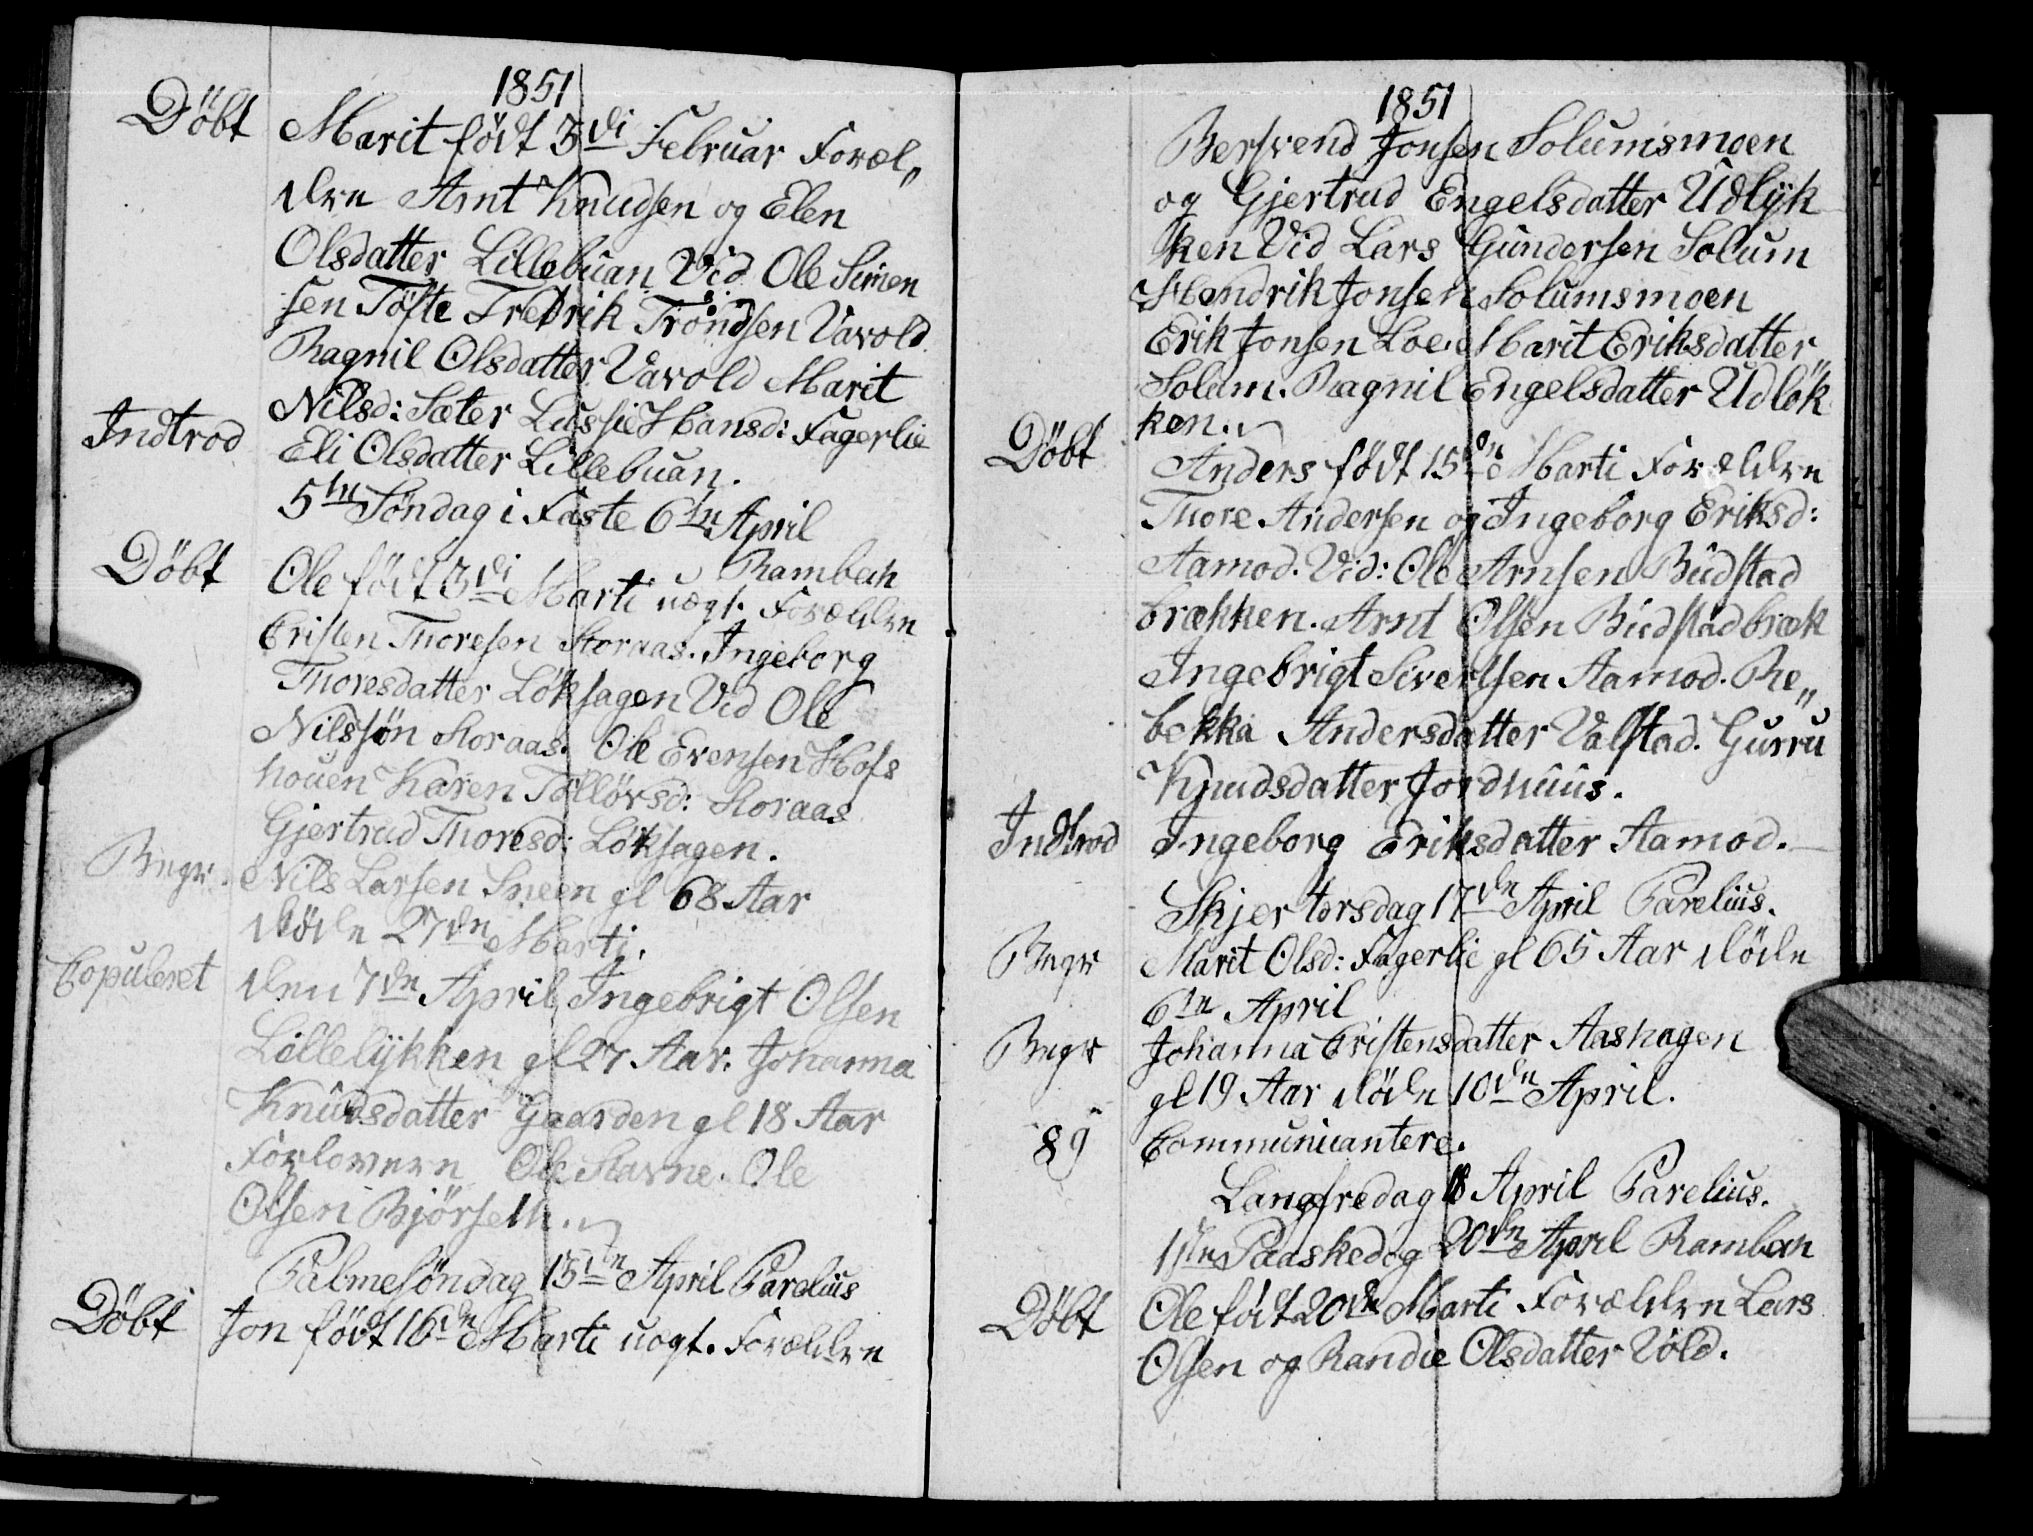 1851
Döbt Marit födt 3di Februar Foræl„
dre Arnt Knudsen og Elen
Olsdatter Lillebuan Vid Ole Simen
sen Töfte Fredrik Tröndsen Vavold
Ragnil Olsdatter Vavold Marit
Nilsd: Sæter Lussie Hansd: Fagerlie
Indtrod Eli Olsdatter Lillebuan.
5te Söndag i Faste 6te April
Rambech
Döbt Ole födt 3di Marti uægt. Forældre
Cristen Thoresen Storaas. Ingeborg
Thoresdatter Löksagen Vid Ole
Nilssön Storaas. Ole Evensen Hofs
houen Karen Tollövsd: Storaas
Gjertrud Thoresd: Löksagen.
Begr. Nils Larsen Sneen gl 68 Aar
döde 27de Marti.
Copuleret den 7de April Ingebrigt Olsen
Lillelykken gl 27 Aar. Johanna
Knudsdatter Gaarden gl 18 Aar
Forlovere Ole Stavne. Ole
Olsen Bjørseth.
Palmesöndag 13de April Parelius
Döbt Jon födt 16de Marti uægt. Forældre
1851
Bersvend Jonsen Solumsmoen
og Gjertrud Engelsdatter Udlyk
ken Vid Lars Gundersen Solum
Hendrik Jonsen Solumsmoen
Erik Jonsen Loe. Marit Eriksdatter
Solum. Ragnil Engelsdatter Udlök
ken.
Döbt Anders födt 15de Marti Forældre
Thore Andersen og Ingeborg Eriksd:
Aamod. Vid: Ole Arnsen Budstad
brækken. Arnt Olsen Budstadbræk
Ingebrigt Sivertsen Aamod. Re„
bekka Andersdatter Valstad. Gurru
Knudsdatter Jordhuus.
Indtrod Ingeborg Eriksdatter Aamod.
Skjertorsdag 17de April Parelius.
Begr Marit Olsd: Fagerlie gl 65 Aar döde
6te April
Begr Johanna Cristensdatter Aashagen
gl 19 Aar döde 10de April.
89 Communicantere.
Langfredag 18 April Parelius.
1ste Paaskedag 20de April Rambech
Döbt Ole födt 20de Marti Forældre Lars
Olsen og Randie Olsdatter Vold.